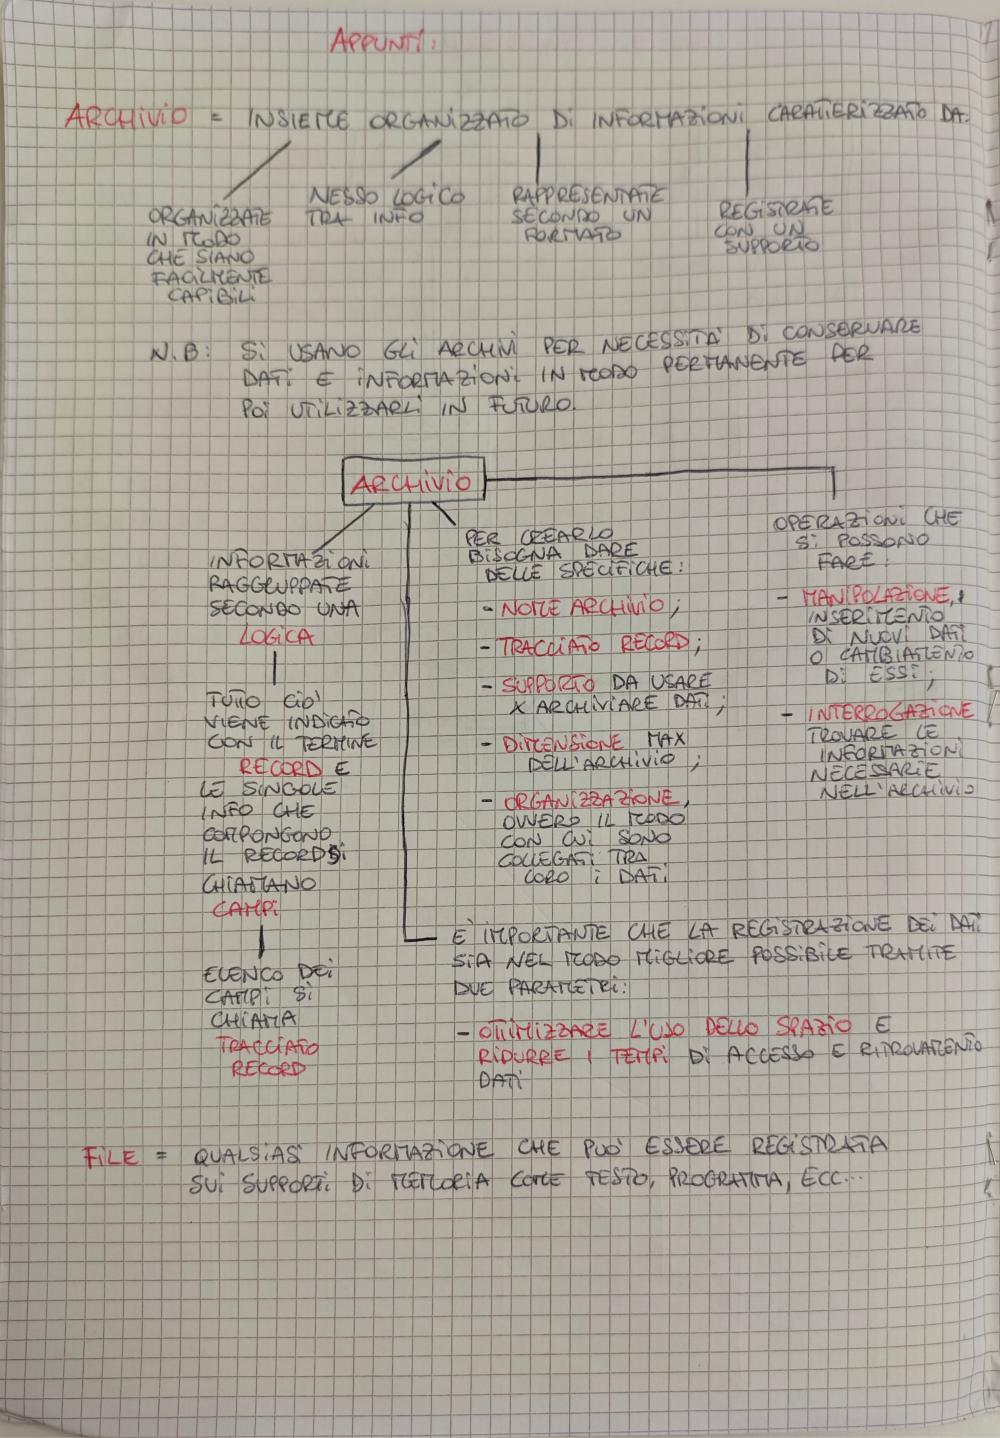 APPUNTI:
ARCHIVIO = INSIEME ORGANIZZATO DI INFORMAZIONI CARATTERIZZATO DA:
ORGANIZZATE
IN MODO
CHE SIANO
FACILMENTE
CAPIBILI
NESSO LOGICO
TRA INFO
RAPPRESENTATE
SECONDO UN
FORMATO
REGISTRATE
CON UN
SUPPORTO
N.B: SI USANO GLI ARCHIVI PER NECESSITÀ DI CONSERVARE
DATI E INFORMAZIONI IN MODO PERMANENTE PER
POI UTILIZZARLI IN FUTURO.
ARCHIVIO
INFORMAZIONI
RAGGRUPPATE
SECONDO UNA
LOGICA
TUTTO CIO'
VIENE INDICATO
CON IL TERMINE
RECORD E
LE SINGOLE
INFO CHE
COMPONGONO
IL RECORD SI
CHIAMANO
CAMPI
ELENCO DEI
CAMPI SI
CHIAMA
TRACCIATO
RECORD
PER CREARLO
BISOGNA DARE
DELLE SPECIFICHE:
- NOME ARCHIVIO;
- TRACCIATO RECORD;
- SUPPORTO DA USARE
X ARCHIVIARE DATI;
- DIMENSIONE MAX
DELL'ARCHIVIO;
- ORGANIZZAZIONE,
OVVERO IL MODO
CON CUI SONO
COLLEGATI TRA
LORO I DATI
OPERAZIONI CHE
SI POSSONO
FARE:
- MANIPOLAZIONE,
INSERIMENTO
DI NUOVI DATI
O CAMBIAMENTO
DI ESSI;
- INTERROGAZIONE
TROVARE LE
INFORMAZIONI
NECESSARIE
NELL'ARCHIVIO
E' IMPORTANTE CHE LA REGISTRAZIONE DEI DATI
SIA NEL MODO MIGLIORE POSSIBILE TRAMITE
DUE PARAMETRI:
- OTTIMIZZARE L'USO DELLO SPAZIO E
RIDURRE I TEMPI DI ACCESSO E RITROVAMENTO
DATI
FILE = QUALSIASI INFORMAZIONE CHE PUO' ESSERE REGISTRATA
SUI SUPPORTI DI MEMORIA COME TESTO, PROGRAMMA, ECC...